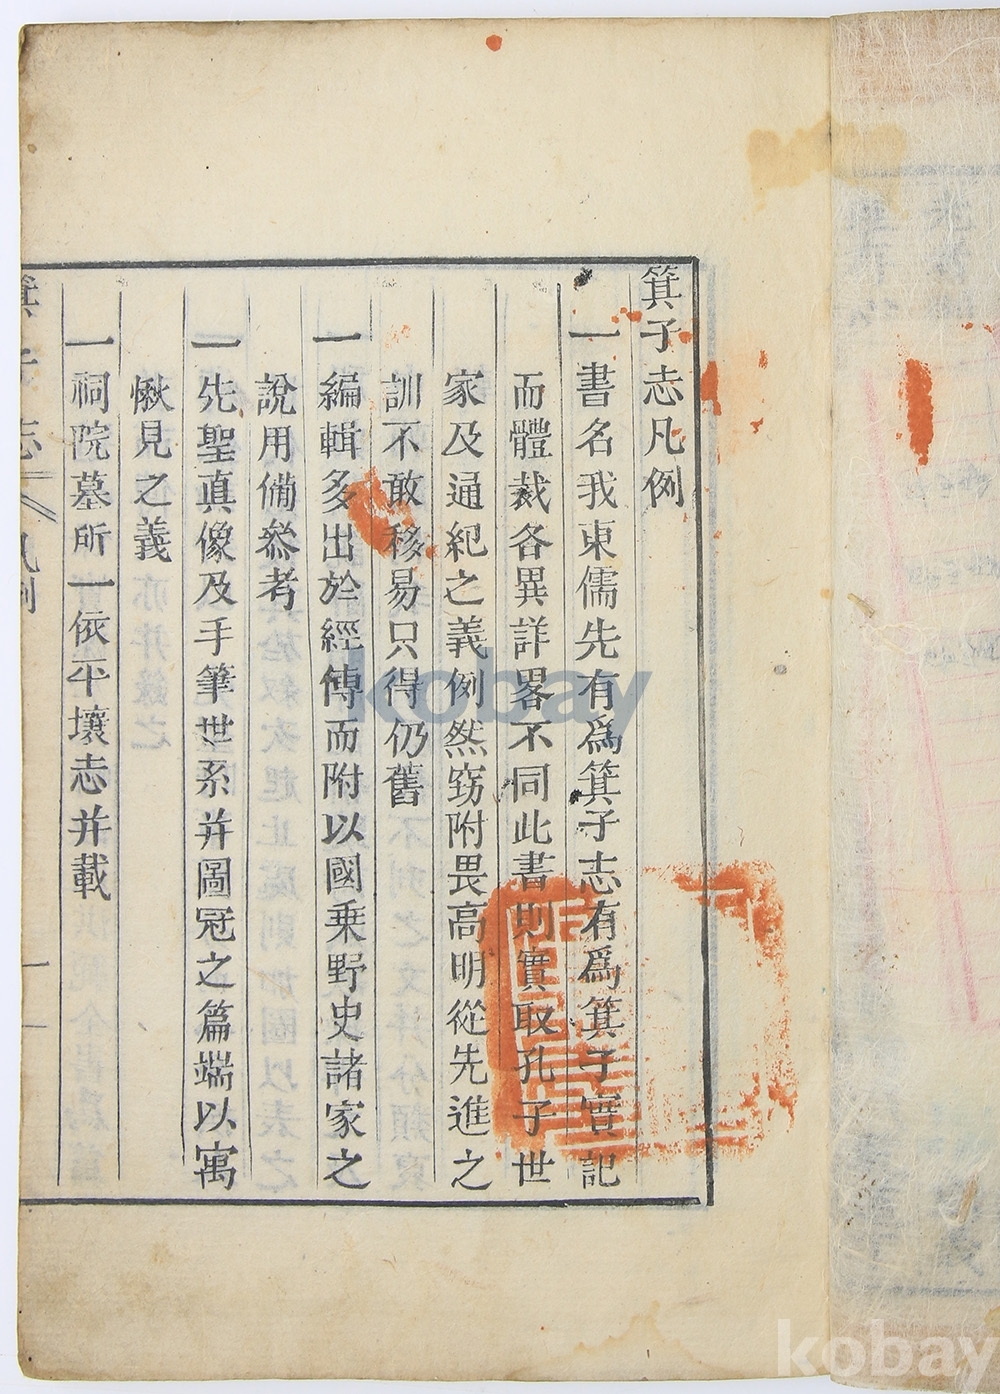 箕子志凡例
一書名我東儒先有爲箕子志有爲箕子實記
而體裁各異詳畧不同此書則實取孔子世
家及通紀之義例然窃附畏高明從先進之
訓不敢移易只得仍舊
一編輯多出於經傳而附以國乗野史諸家之
說用備叅考
一先聖真像及手筆世系并圖冠之篇端以寓
愀見之義
一祠院墓所一依平壤志并載
箕子志 凡例 一
kobay
kobay